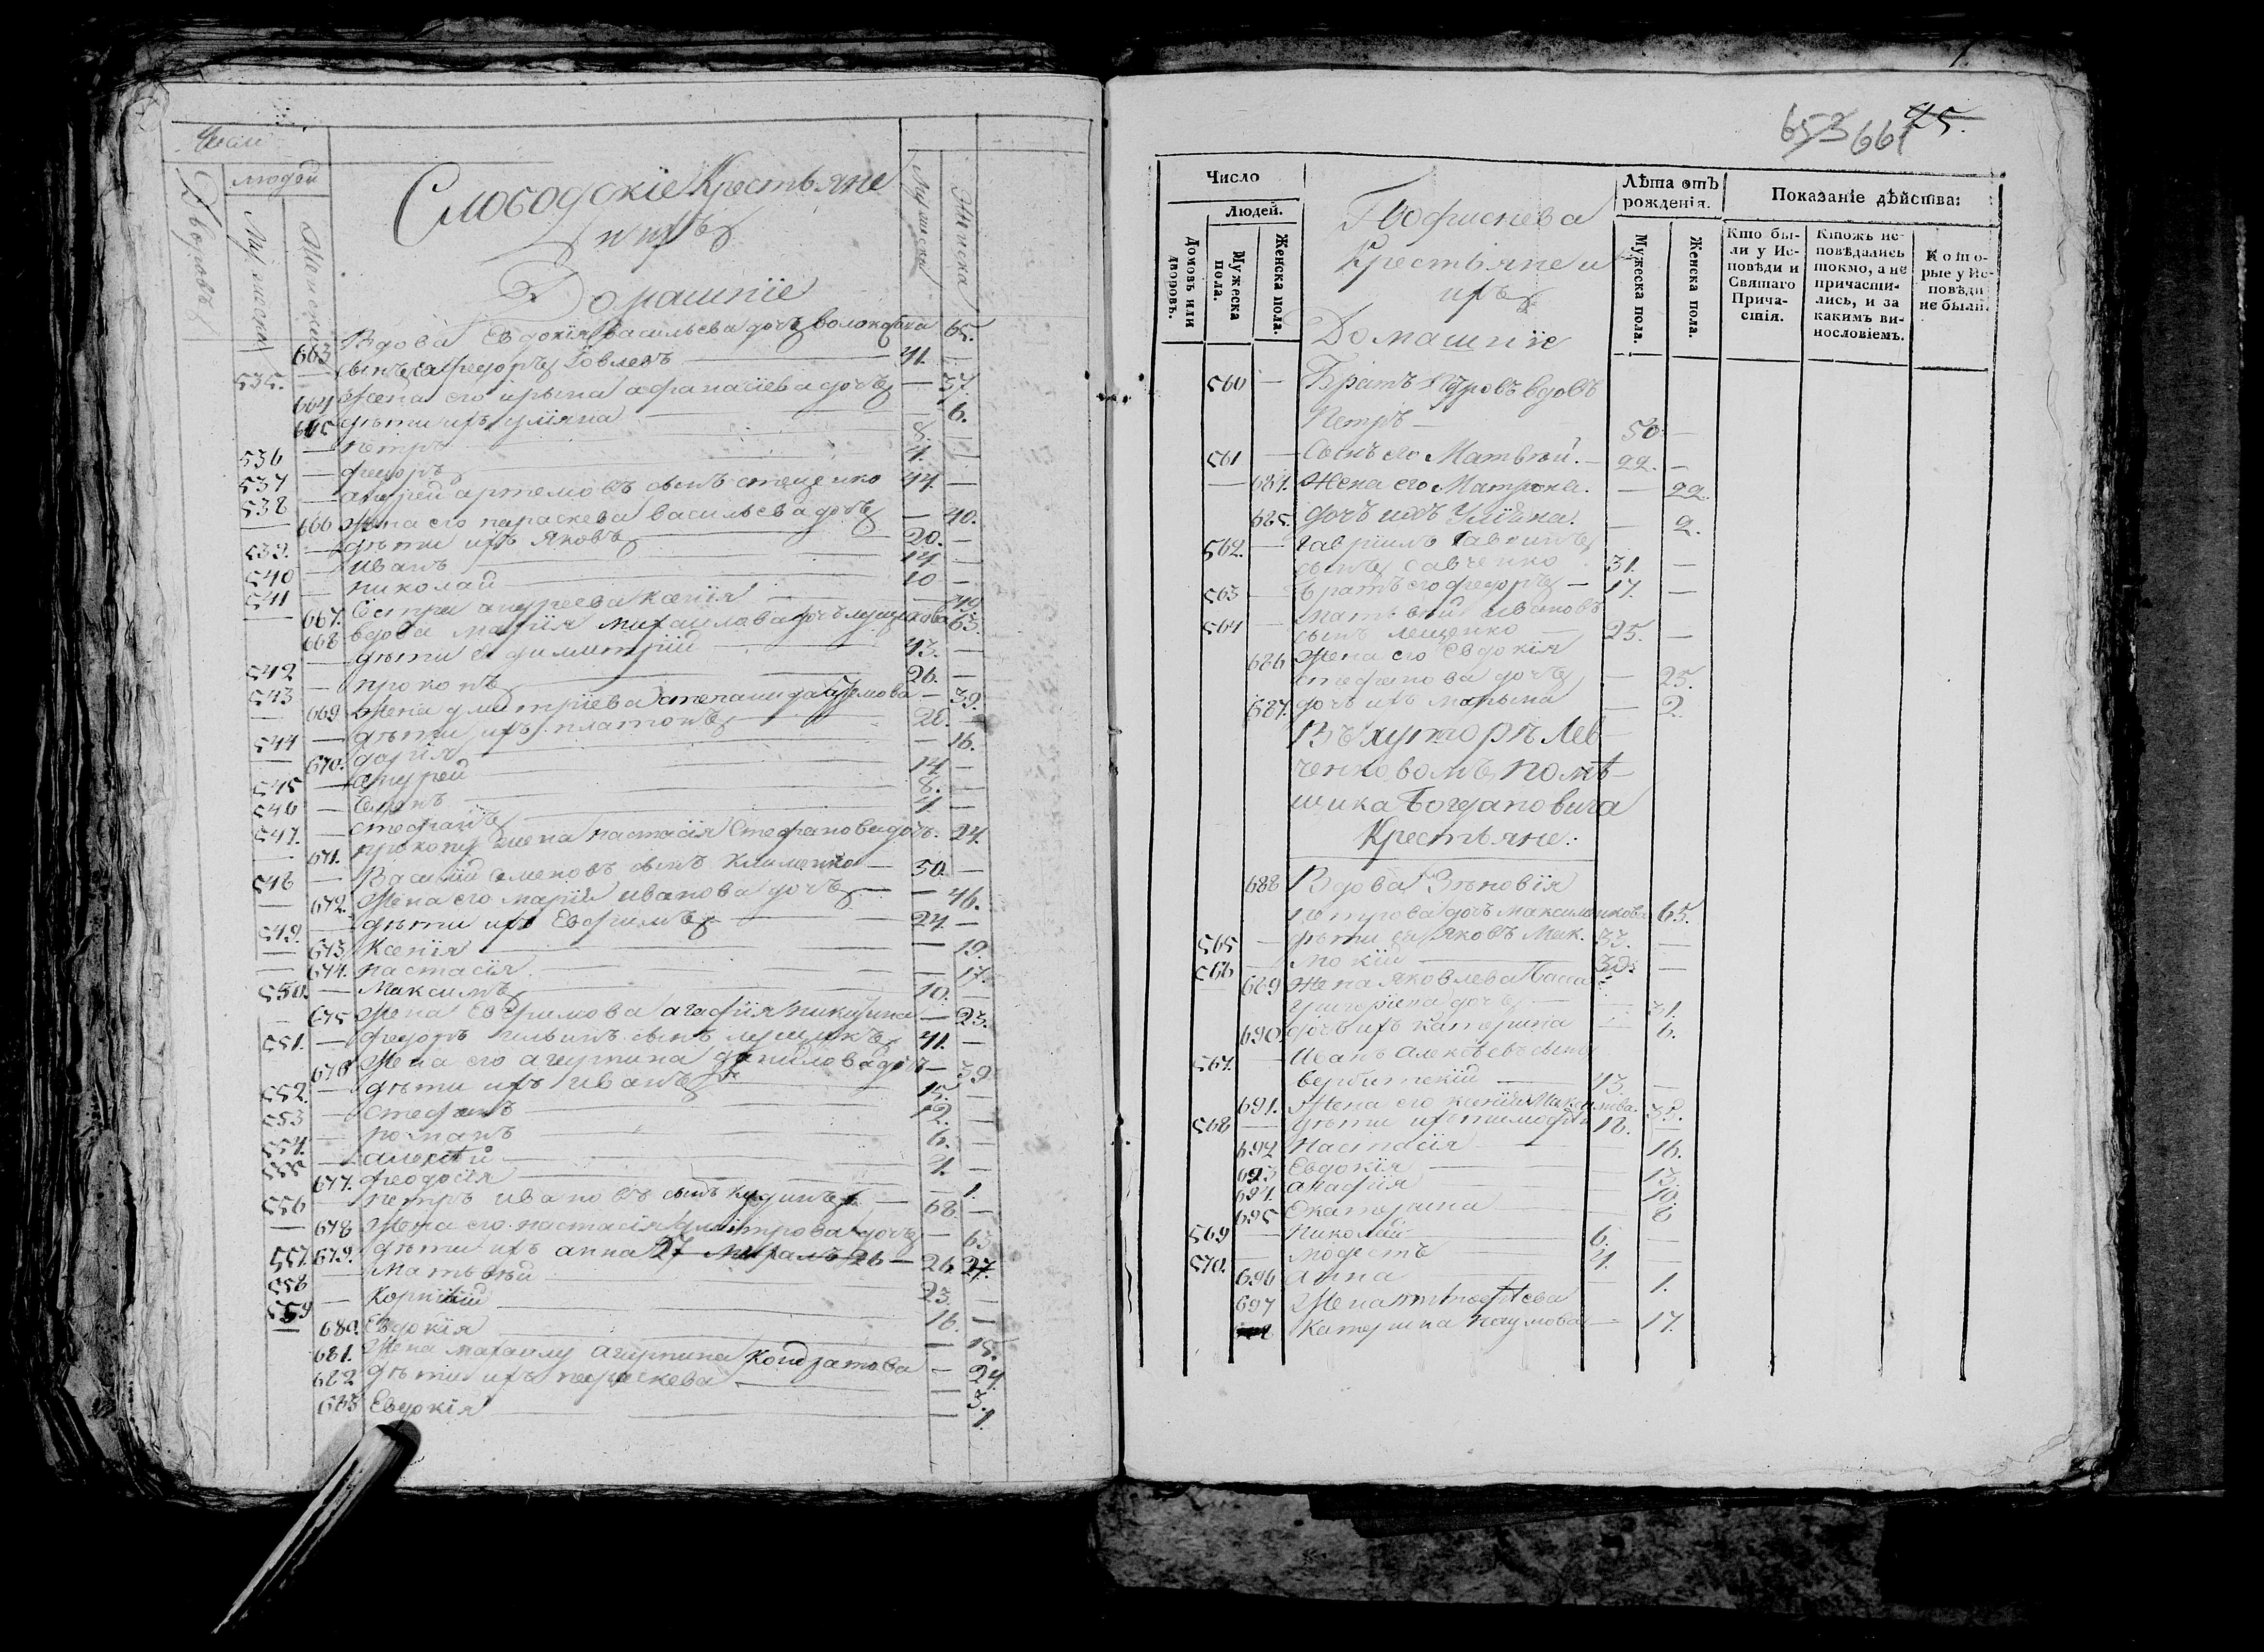 Число
людей
Дворовъ
Мужеска
Женска
Слободскіе Крестьяне
и ихъ
Домашніе
Мужеска
Женска
663 Вдова Евдокія васильева дочь 65.
535. — сынъ ея федоръ 41. —
664 Жена его ирына афанасіева дочь — 37.
665 дѣти ихъ уліяна — 6.
536 — петръ 8. —
537 — федоръ 4. —
538 — андрей артемовъ сынъ стеценко 44. —
— 666 жена его параскева васильева дочь — 40.
539. — дѣти ихъ Яковъ 20. —
540 — иванъ 14 —
541 — николай 10 —
— 667. Сестра андреева Ксенія — 49
668 вдова марія михайлова дочь 63.
542 — дѣти ея димитрій 43. —
543 — прокопъ 26. —
— 669 Жена дмитріева степанида — 39.
544 — дѣти ихъ платонъ 20. —
— 670. дарія — 16.
545 — андрей 14 —
546 — Семенъ 8. —
547. — стефанъ 4 —
— 671. прокопу жена настасія Стефанова дочь. 24.
548 — Василій Семеновъ сынъ Клименко — 50. —
— 672. Жена его марія иванова дочь — 46.
549. — дѣти ихъ Евфимъ 24. —
— 673 Ксенія — 19.
— 674. настасія — 17.
550. — Максимъ 10. —
— 675 Жена Евфимова агафія никитина — 23.
551. — федоръ ильинъ сынъ 41. —
676 Жена его агрипина данилова дочь — 39
552. — дѣти ихъ иванъ 15. —
553 — Стефанъ 12. —
554. — романъ 6. —
555 — алексѣй 4. —
677. феодосія — 1.
556 — петръ ивановъ сынъ 68. —
— 678 Жена его настасія дмитрова дочь — 63
557. 679. дѣти ихъ анна 27 26 — 26 27.
558 — Матвѣй 23. —
559 — Корнилій 16. —
— 680. Евдокія — 15.
681. Жена агрипина Кондратова — 24
682 дѣти ихъ параскева — 3.
683 Евдокія — 1.
653 661 25.
Число
Людей.
Домовъ или дворовъ.
Мужеска пола.
Женска пола.
Крестьяне и
ихъ
Домашніе
Лѣта отъ рожденія.
Мужеска пола.
Женска пола.
Показаніе дѣйства:
Кто были у Исповѣди и Святаго Причастія.
Ктожъ исповѣдались токмо, а не причастились, и за какимъ винословіемъ.
Которые у Исповѣди не были.
560 — Братъ вдовъ
Петръ — 50. —
561 — Сынъ его Матвѣй. — 22. —
— 684. Жена его Матрона. — 22.
685. дочь ихъ Уліяна. — 2.
562. — гавріилъ
сынъ савченко 31. —
563 — Братъ его федоръ — 17. —
564 — матвѣй ивановъ
сынъ лещенко — 25. —
686 Жена его Евдокія
стефанова дочь — 25.
687. дочь ихъ марына — 2.
Въ хуторѣ Лев
ченковомъ помѣ
щика Богдановича
Крестьяне:
688 Вдова Зѣновія
петрова дочь 65.
565 — дѣти ея Яковъ Мак. 33. —
566 — мокій 30. —
689 Жена Яковлева Васса
григоріева дочь — 31.
690. дочь ихъ катерина — 6.
567. — Иванъ алексѣевъ сынъ
вербитскій — 43. —
691. Жена его ксенія 38.
568 — дѣти ихъ тимофей 18. —
692 Настасія — 16.
693 Евдокія — 13.
694. агафія — 10.
695 Екатерина — 8
569 — Николай 6. —
570. — модестъ 4. —
696 анна — 1.
697 Жена тимофѣева
Катерина наумова — 17.